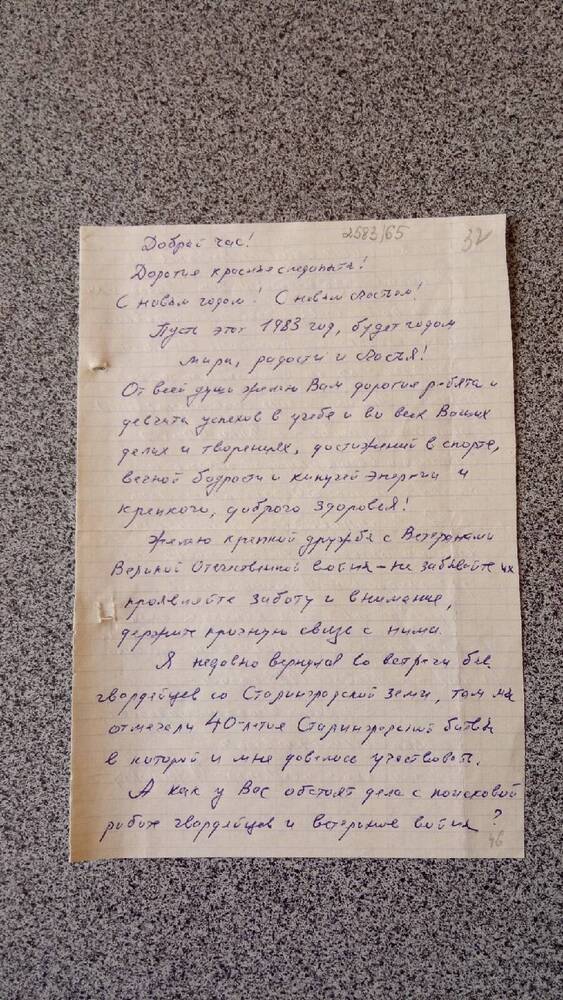 Добрый час! 2583/65 32
Дорогие красные следопыты!
С новым годом! С новым счастьем!
Пусть этот 1983 год, будет годом
мира, радости и счастья!
От всей души желаю Вам дорогие ребята и
девчата успехов в учебе и во всех Ваших
делах и творениях, достижений в спорте,
вечной бодрости и кипучей энергии и
крепкого, доброго здоровья!
Желаю крепкой дружбы с Ветеранами
Великой Отечественной войны - не забывайте их
проявляйте заботу и внимание,
держите прочную связь с ними.
Я недавно вернулся со встречи
гвардейцев со Сталинградской земли, там мы
отмечали 40-летия Сталинградской битвы
в которой и мне довелось участвовать.
А как у Вас обстоят дела с поисковой
работе гвардейцев и ветеранов войны?
46